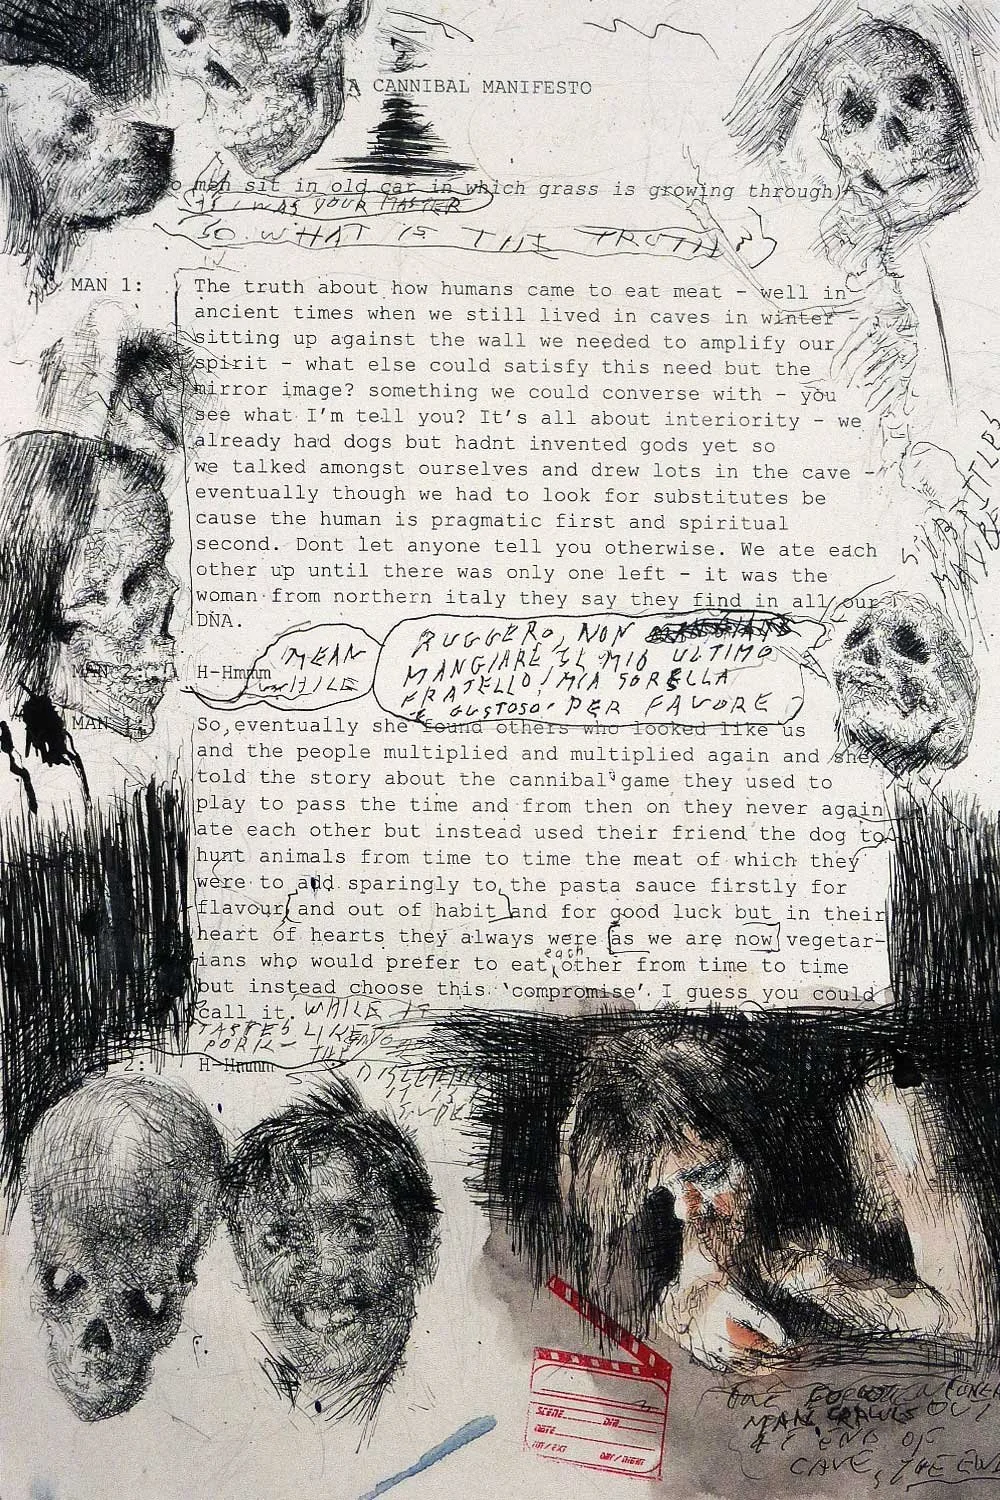 A CANNIBAL MANIFESTO
men sit in old car in which grass is growing through)
AS I WAS YOUR MASTER
SO WHAT IS THE TRUTH?
MAN 1: The truth about how humans came to eat meat - well in
ancient times when we still lived in caves in winter
sitting up against the wall we needed to amplify our
spirit - what else could satisfy this need but the
mirror image? something we could converse with - you
see what I'm tell you? It's all about interiority - we
already had dogs but hadnt invented gods yet so
we talked amongst ourselves and drew lots in the cave -
eventually though we had to look for substitutes be
cause the human is pragmatic first and spiritual
second. Dont let anyone tell you otherwise. We ate each
other up until there was only one left - it was the
woman from northern italy they say they find in all our
DNA.
MEAN
WHILE
RUGGERO, NON
MANGIARE IL MIO ULTIMO
FRATELLO! MIA SORELLA
E GUSTOSO. PER FAVORE
MAN 2: H-Hmmm
MAN 1: So, eventually she found others who looked like us
and the people multiplied and multiplied again and she
told the story about the cannibal game they used to
play to pass the time and from then on they never again
ate each other but instead used their friend the dog to
hunt animals from time to time the meat of which they
were to add sparingly to the pasta sauce firstly for
flavour and out of habit and for good luck but in their
heart of hearts they always were as we are now vegetar-
ians who would prefer to eat each other from time to time
but instead choose this 'compromise'. I guess you could
call it. WHILE IT
TASTES LIKE
PORK - THE
2: H-Hmmm
SCENE DIR.
DATE
INT / EXT DAY / NIGHT
MAN CRAWLS OUT
AT END OF
CAVE, THE END